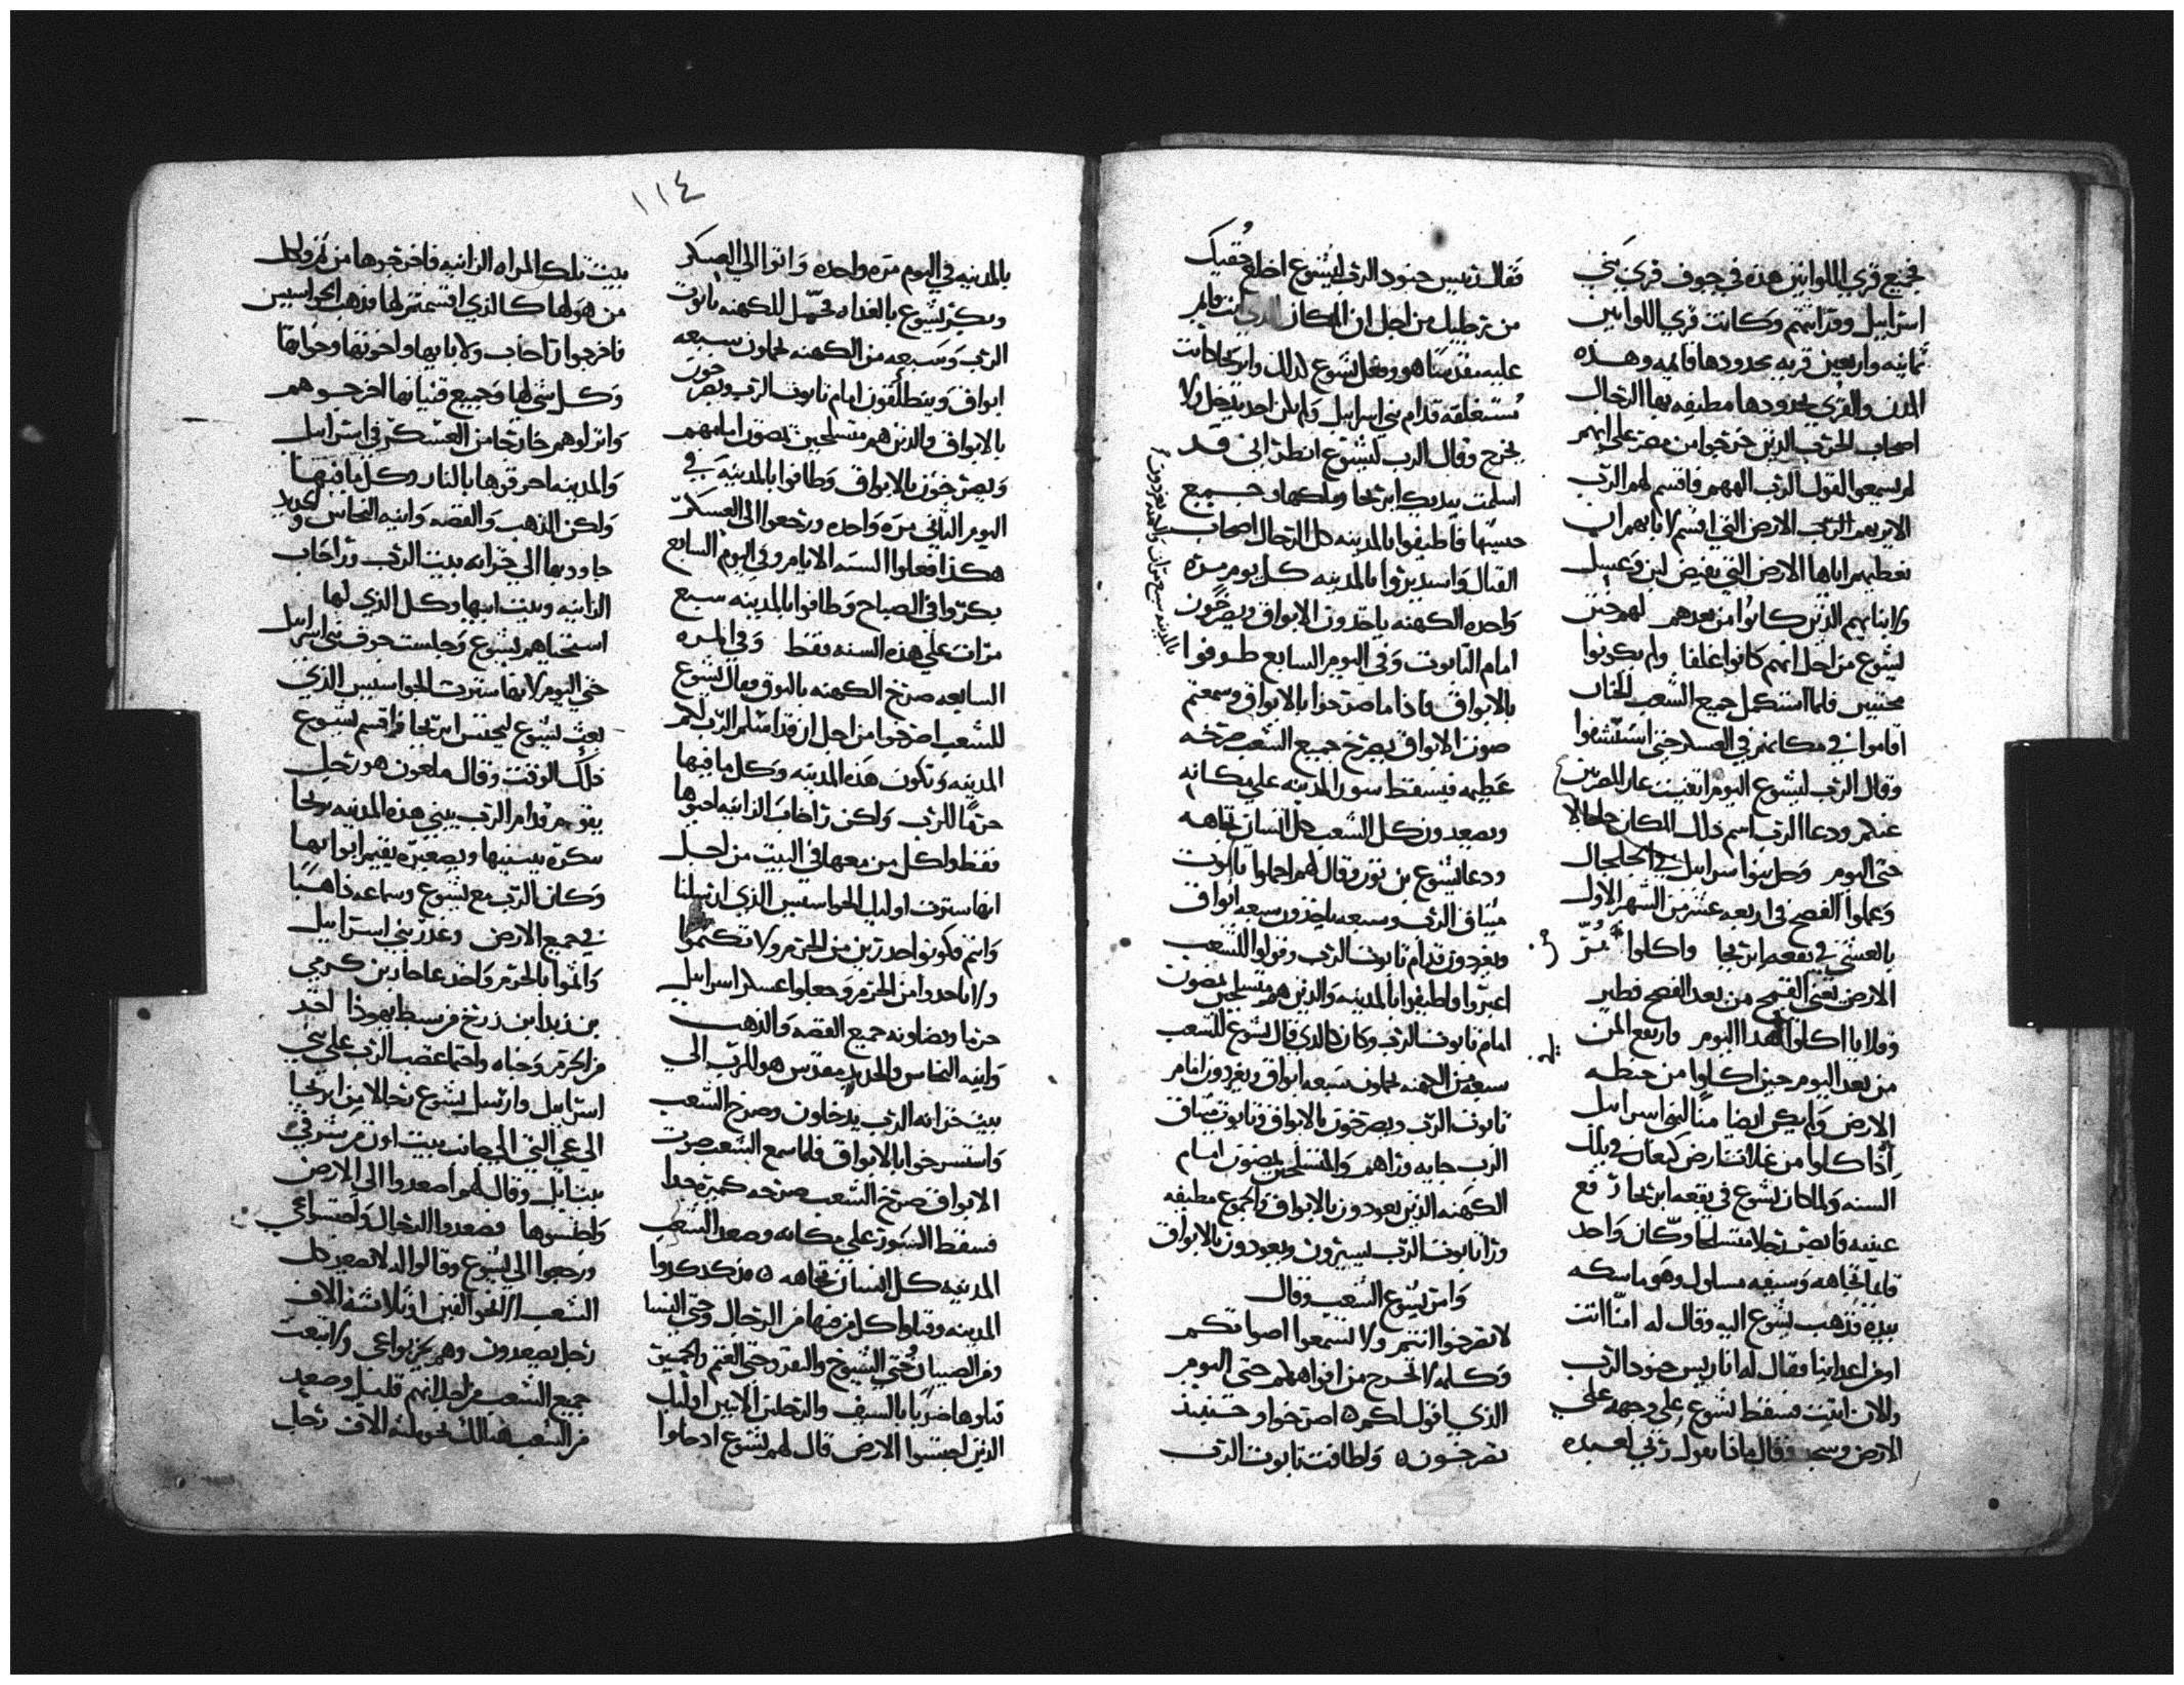 فجميع قري اللوانين هذه في جوف قري بني
اسراييل وقداستهم وكانت قري اللوانين
ثمانيه واربعين قريه بحدودها قايمه وهذه
المدن والقري بحدودها مطيفه بها الرجال
اصحاب الحرب الذين خرجوا من مصر علي انهم
لم يسمعوا القول الرب الههم فاقسم لهم الرب
الا يريهم الرب الارض التي اقسم لابايهم ان
يعطيهم اياها الارض التي تفيض لبن وعسل
ولابنايهم الذين كانوا من بعدهم لهم ختن
يشوع من اجل انهم كانوا غلفا ولم يكونوا
مختنين فلما استكمل جميع الشعب الختان
اقاموا في مكانهم في العسكر حتي استشفوا
وقال الرب ليشوع اليوم انفيت عار المصرين
عنكم ودعا الرب اسم ذلك المكان جلجالا
حتي اليوم وحل بنوا اسراييل في الجلجال
وعملوا الفصح في اربعه عشر من الشهر الاول
بالعشي في بقعه اريحا واكلوا بُرّ
الارض يعني القمح من بعد الفصح فطير
وقلايا اكلوا لهذا اليوم وارتفع المن
من بعد اليوم حين اكلوا من حنطه
الارض ولم يكن ايضا منًا لبني اسراييل
اذا كلوا من غلات ارض كنعان في تلك
السنه ولما كان يشوع في بقعه اريحا رفع
عينيه فابصر رجلا متسلحا وكان واحد
قايما تجاهه وسيفه مسلول وهو ماسكه
بيده فذهب يشوع اليه وقال له امنّا انت
او من اعداينا فقال له انا ريس جنود الرب
والان اتيت فسقط يشوع علي وجهه علي
الارض وسجد فقال ماذا يقول ربي لعبده
فقال ريس جنود الرب ليشوع اخلع خُفيك
من رجليك من اجل ان المكان الذي انت قايم
عليه مقدسًا هو وفعل يشوع لذلك واريحا كانت
مُستغلقه قدام بني اسراييل ولم يكن احد يدخل ولا
يخرج وقال الرب ليشوع انظر اني قد
اسلمت بيديك اريحا وملكها وجميع
جيشها فاطيفوا بالمدينه كل الرجال اصحاب
القتال واستديروا بالمدينه كل يوم مره
واحده الكهنه ياخذون الابواق ويصرخون
امام التابوت وفي اليوم السابع طوفوا
بالابواق فاذا ما صرخوا بالابواق وسمعتم
صوت الابواق يصرخ جميع الشعب صرخه
عظيمه فيسقط سور المدينه علي مكانه
ويصعدون كل الشعب كل انسان تجاهه
ودعا يشوع بن نون وقال لهم احملوا تابوت
ميثاق الرب وسبعه ياخذون سبعه ابواق
ويغردون قدام تابوت الرب وقولوا للشعب
اعبروا واطيفوا بالمدينه والذين هم متسلحين يمضون
امام تابوت الرب وكان كالذي قال يشوع للشعب
سبعه من الكهنه يحملون سبعه ابواق ويغردون امام
تابوت الرب ويصرخون بالابواق وتابوت ميثاق
الرب جايه وراهم والمتسلحين يمضون امام
الكهنه الذين يعودون بالابواق والجموع مطيفه
ورا تابوت الرب يسيرون ويعودون بالابواق
وامر يشوع الشعب وقال
لا تصرخوا انتم ولا تسمعوا اصواتكم
وكلمه لا تخرج من افواهكم حتي اليوم
الذي اقول لكم ه اصرخوا وحينيذ
تصرخون ه ولطافت تابوت الرب
بالمدينه سبع مرات
١١٤
بالمدينه في اليوم مره واحده واتوا الي العسكر
وبكر يشوع بالغداه فحمّل للكهنه تابوت
الرب وسبعه من الكهنه يحملون سبعه
ابواق وينطلقون امام تابوت الرب ويصرخون
بالابواق والذين هم متسلحين يمضون امامهم
ويصرخون بالابواق وطافوا بالمدينه في
اليوم الثاني مره واحده ورجعوا الي العسكر
هكذا فعلوا السته الايام وفي اليوم السابع
بكروا في الصباح وطافوا بالمدينه سبع
مرات علي هذه السنه فقط وفي المره
السابعه صرخ الكهنه بالبوق وقال يشوع
للشعب اصرخوا من اجل ان قد اسلم الرب لكم
المدينه وتكون هذه المدينه وكل ما فيها
حرمًا للرب ولكن راحاب الزانيه احيوها
فقط ولكل من معها في البيت من اجل
انها سترت اوليك الجواسيس الذي ارسلنا
وانتم فكونوا حذرين من الحرم ولا تكتموا
ولا تاخذوا من الحرم وتجعلوا عسكر اسراييل
حرما وتضاونه جميع الفضه والذهب
وانيه النحاس والحديد مقدس هو للرب الي
بيت خزانه الرب يدخلون وصرخ الشعب
واستسرخوا بالابواق فلما سمع الشعب صوت
الابواق صرخ الشعب صرخه كبيره جدا
فسقط السور علي مكانه وصعد الشعب
المدينه كل انسان تجاهه ه
المدينه وقتلوا كل من فيها من الرجال وحتي النسا
ومن الصبيان حتي الشيوخ والبقر وحتي الغنم والحمير
قتلوها ضربًا بالسيف والرجلين الاثنين اوليك
الذين اجتسوا الارض قال لهم يشوع ادخلوا
بيت تلك المراه الزانيه فاخرجوها من ثم وكل
من هو لها كالذي اقسمتم لها فذهب الجواسيس
فاخرجوا راحاب ولابايها واخوتها وخواتها
وكل شي لها وجميع قنيانها اخرجوهم
وانزلوهم خارجا من العسكر في اسراييل
والمدينه احرقوها بالنار وكل ما فيها
ولكن الذهب والفضه وانيه النحاس والحديد
جاودبها الي خزانه بيت الرب وراحاب
الزانيه وبيت ابيها وكل الذي لها
استحياهم يشوع وجلست جوف بني اسراييل
حتي اليوم لانها سترت الجواسيس الذي
بعث يشوع ليجتس اريحا واقسم يشوع
ذلك الوقت وقال ملعون هو رجل
يقوم قدام الرب يبني هذه المدينه يريحا
ببكره يبنيها وبصغيره يقيم ابوابها
وكان الرب مع يشوع وسماعه ذاهبًا
في جميع الارض وغدر بني اسراييل
واثموا بالحرم واخذ عاخار بن كرمي
بن زبدا بن زرح من سبط يهوذا اخذ
من الحرم وخباه واحتما غضب الرب علي بني
اسراييل وارسل يشوع رجالا من اريحا
الي عي التي الي جانب بيت اون من شرقي
بيت ايل وقال لهم اصعدوا الي الارض
واجتسوها فصعدوا الرجال واجتسوا عي
ورجعوا الي يشوع وقالوا له لا تصعد كل
الشعب الا نحو الفين او ثلاثه الاف
رجل يصعدون وهم يخربوا عي ولا تبعث
جميع الشعب من اجل انهم قليل وصعد
من الشعب هنالك نحو ثلثه الاف رجل